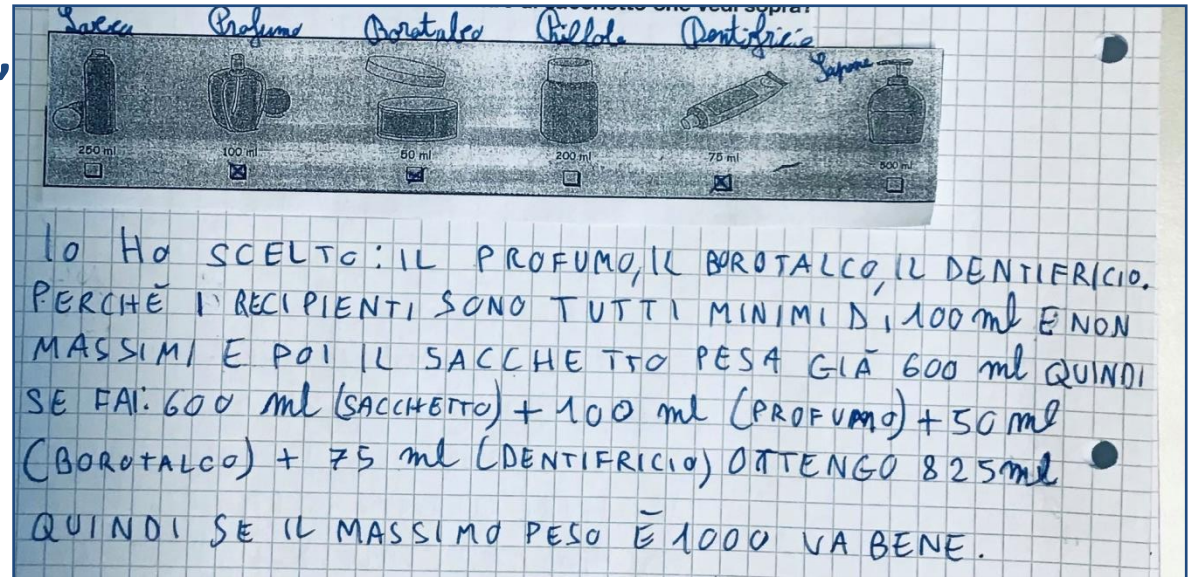 che vedi sopra?
Profumo Borotalco Pillole Dentifricio
Sapone
250 ml 100 ml 50 ml 200 ml 75 ml 500 ml
IO HO SCELTO: IL PROFUMO, IL BOROTALCO, IL DENTIFRICIO.
PERCHÈ I RECIPIENTI SONO TUTTI MINIMI DI 100 ml E NON
MASSIMI E POI IL SACCHETTO PESA GIÀ 600 ml QUINDI
SE FAI: 600 ml (SACCHETTO) + 100 ml (PROFUMO) + 50 ml
(BOROTALCO) + 75 ml (DENTIFRICIO) OTTENGO 825 ml
QUINDI SE IL MASSIMO PESO È 1000 VA BENE.